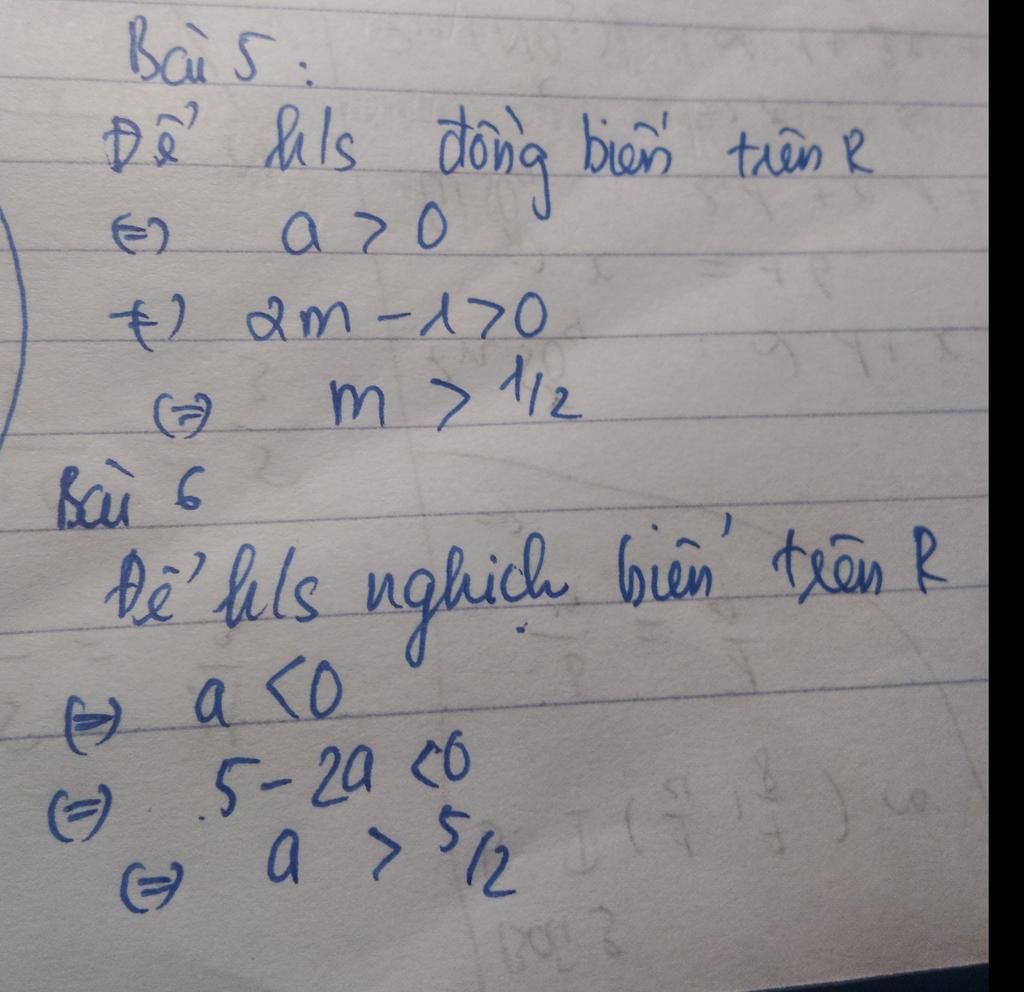 Bài 5:
Để h/s đồng biến trên R
(=) a > 0
(=) 2m - 1 > 0
(=) m > 1/2
Bài 6
Để h/s nghịch biến trên R
(=) a < 0
(=) 5 - 2a < 0
(=) a > 5/2